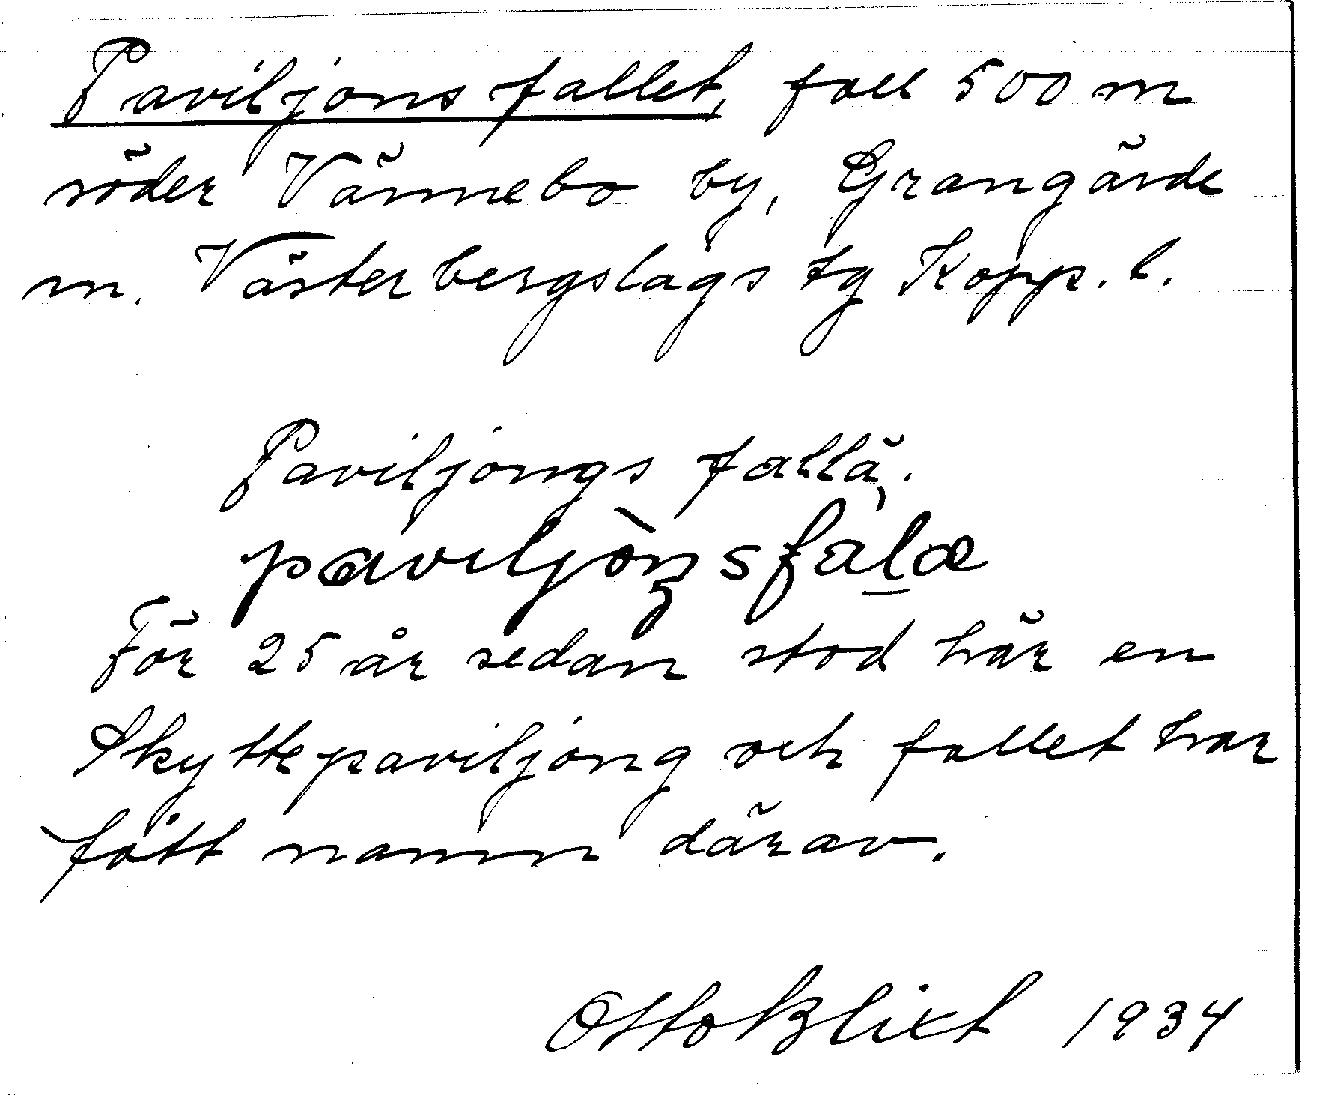 Paviljonsfallet, fall 500 m
söder Vännebo by, Grangärde
sn. Västerbergslags tg Kopp. l.
Paviljongs fallä.
paviljòŋsfàlæ
För 25 år sedan stod här en
Skyttepaviljong och fallet har
fått namn därav.
Otto Blixt 1934